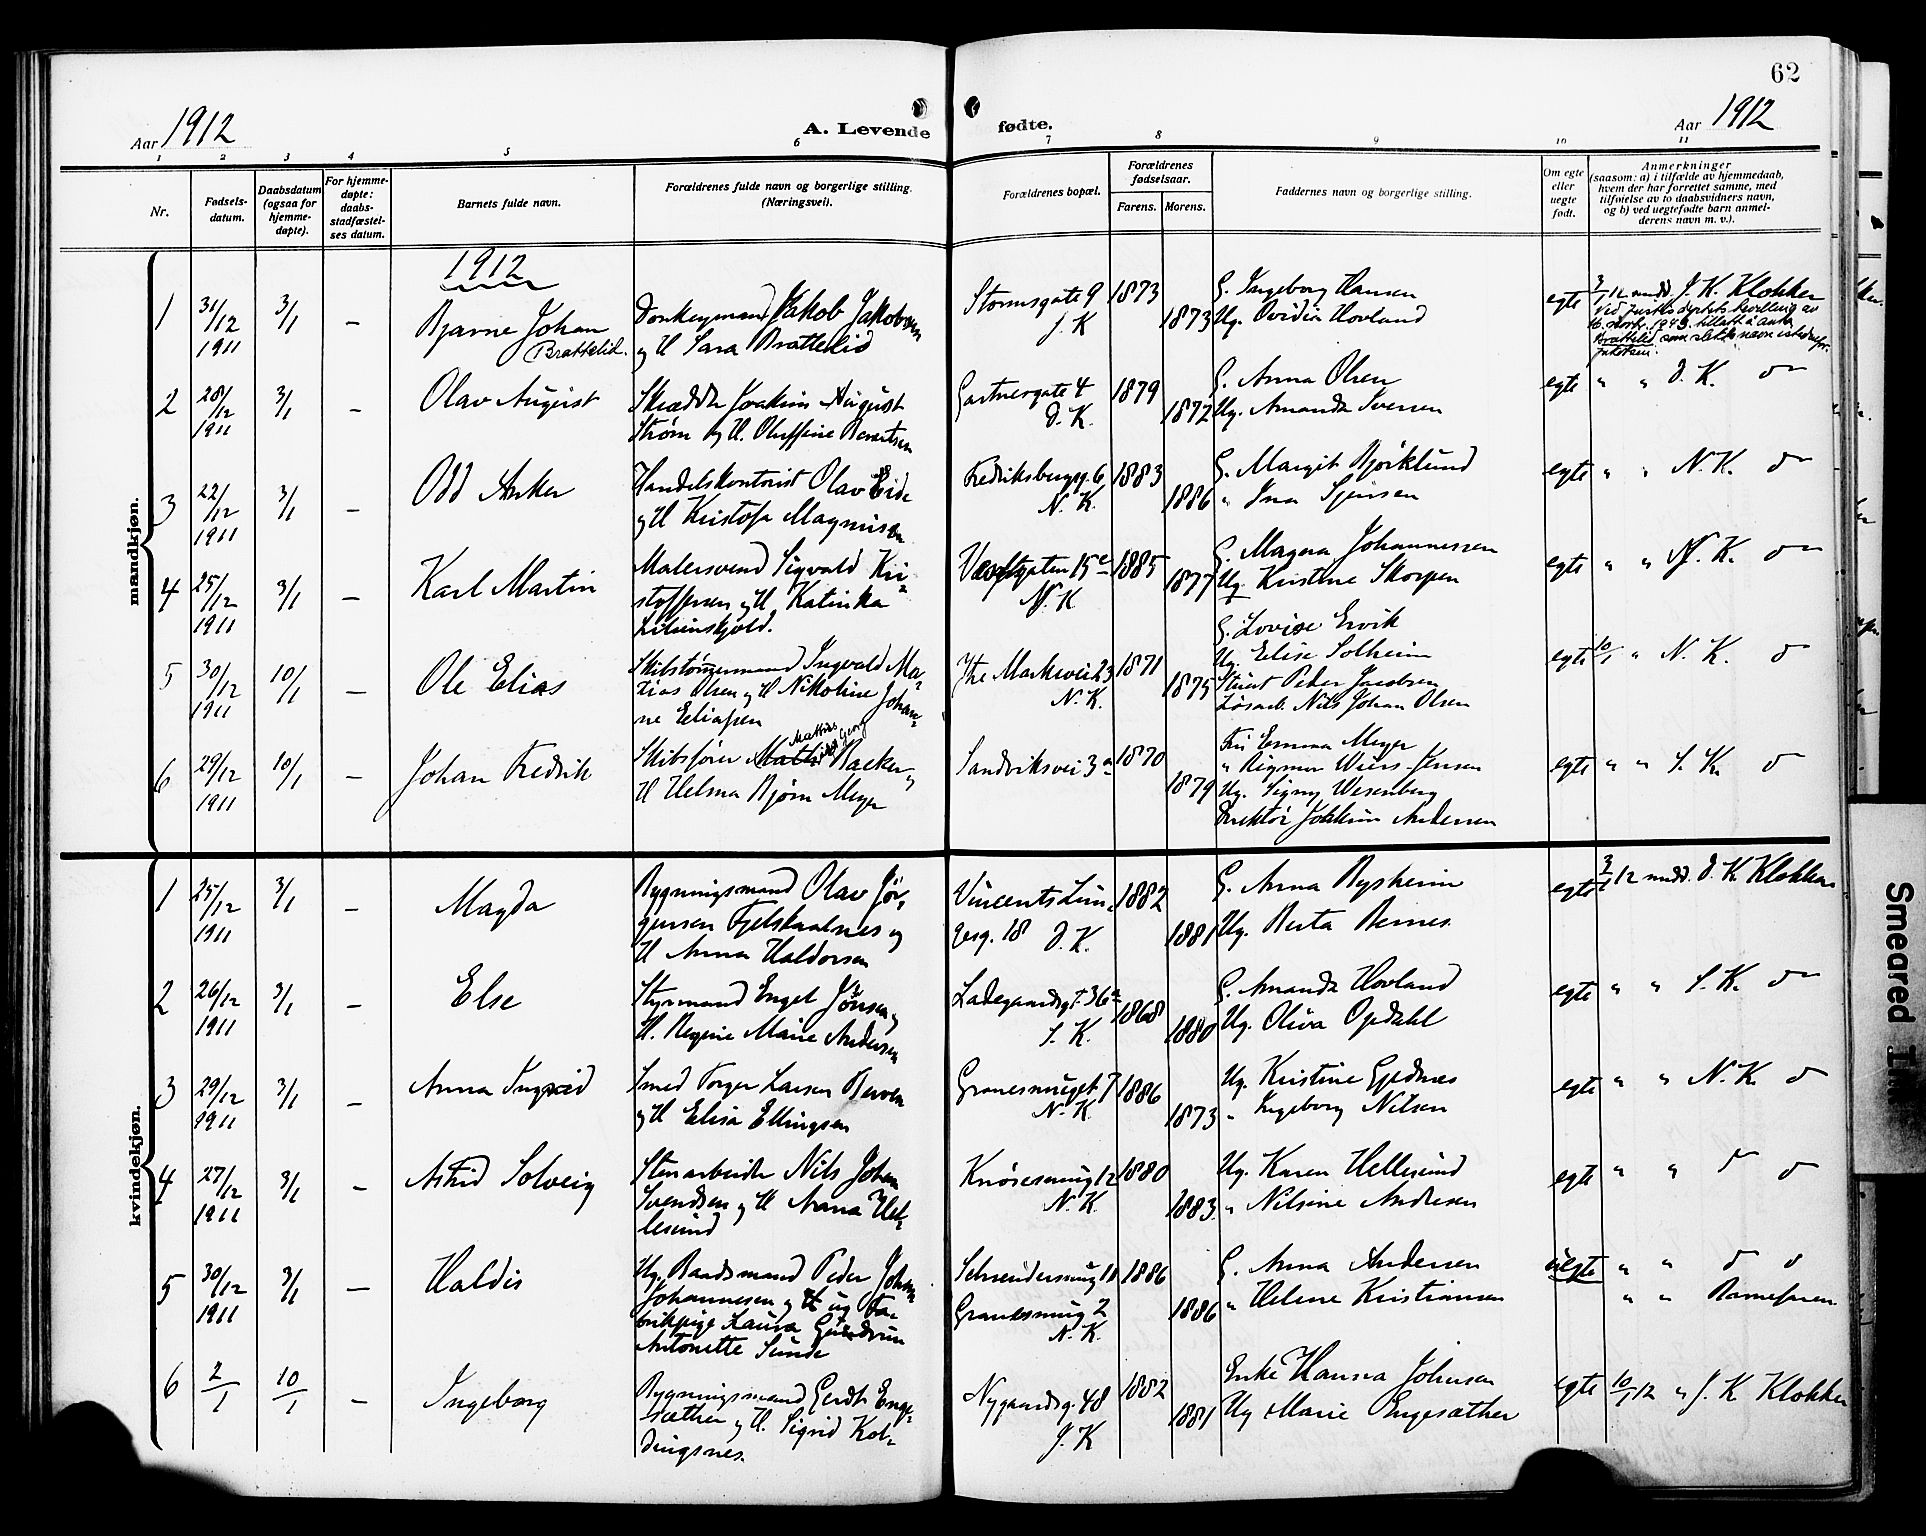 62
Aar 1912
A. Levende
fødte.
Aar 1912
1 2 3 4 5 6 7 8 9 10 11
Nr.
Fødsels-
datum.
Daabsdatum
(ogsaa for
hjemme-
døpte).
For hjemme-
døpte:
daabs-
stadfæstel-
ses datum.
Barnets fulde navn.
Forældrenes fulde navn og borgerlige stilling.
(Næringsvei).
Forældrenes bopæl.
Forældrenes
fødselsaar.
Farens. Morens.
Faddernes navn og borgerlige stilling.
Om egte
eller
uegte
født.
Anmerkninger
(saasom: a) i tilfælde av hjemmedaab,
hvem der har forrettet samme, med
tilføielse av to daabsvidners navn,
og b) ved uegtefødte barn anmel-
derens navn m. v.).
mandkjøn.
1912
1
31/12
1911
3/1
–
Bjarne Johan
Brattelid.
Donkeymand Jakob Jakobsen
og H Sara Brattelid
Stormsgate 9
J. K
1873
1873
G. Ingeborg Hansen
Ug. Ovidia Hovland
egte
3/1 12 mdd J. K. Klokker
ved Justisdep.ts bevilling av
1943 tillatt å anta
Brattelid som slektsnavn istedenfor
Jakobsen.
2
28/12
1911
3/1
–
Olav August
Skrædder Joakim August
Strøm og H. Oluffine Berntsen
Gartnergate 4
D. K.
1879
1872
G. Anna Olsen
Ug. Amanda Iversen
egte
" " D. K. do
3
22/12
1911
3/1
–
Odd Anker
Handelskontorist Olav Eide
og H Kristofa Magnusen
Fredriksbergsg. 6
N. K.
1883
1886
G. Margit Bjørklund
" Ina
egte
" " N. K. do
4
25/12
1911
3/1
–
Karl Martin
Malersvend Sigvald Kri-
stoffersen og H. Katinka
Lilienskjold.
15 c
N. K
1885
1877
G. Magna Johannessen
Ug. Kristine Skorpen
egte
" " N. K. do
5
30/12
1911
10/1
–
Ole Elias
Ingvald Ma-
tias Olsen og H Nikoline Johan-
ne Eliassen
Ytre Markevei 23
N. K.
1871
1875
G. Lovise Ervik
Ug. Elise Solheim
Peder Jacobsen
Løsarb. Nils Johan Olsen
egte
10/1 " N. K. do
6
29/12
1911
10/1
–
Johan Fredrik
Mathias
Georg
Skibsfører Backer
H Helma Bjørn Meyer
Sandviksvei 3 a
1870
1879
Fru Emma Meyer
" Rigmor Wiers-Jensen
Ug. Signy Wesenberg
Direktør Joakim Andersen
egte
" " S. K. do
kvindekjøn.
1
25/12
1911
3/1
–
Magda
Bygningsmand Olav Jør-
gensen Fjelskaalnes og
H Anna Haldorsen
Vincents Lun-
gesg. 18 J. K.
1882
1881
G. Anna Rysheim
Ug. Berta Bernes
egte
3/1 12 mdd. J. K. Klokker
2
26/12
1911
3/1
–
Else
Styrmand Engel Jønsen og
H. Regine Marie Andersen
Ladegaardsgt. 36 a
S. K.
1868
1880
G. Amanda Hovland
Ug. Oliva Opdahl
egte
" " S. K. do
3
29/12
1911
3/1
–
Anna Ingrid
Smed Torger Larsen Berven
og H Elisa Ellingsen
Granesmuget 7
N. K.
1886
1873
Ug. Kristine Gjednes
" Ingeborg Nilsen
egte
" " N. K. do
4
27/12
1911
3/1
–
Astrid Solveig
Stenarbeider Nils Johan
Svendsen og H Anna Hel-
lesund
Knøsesmug 12
N. K.
1880
1883.
Ug. Karen Hellesund
" Nilsine Andresen
egte
" " do do
5
30/12
1911
3/1
–
Haldis
Ug. Baadsmand Peder Johan
Johannesen og ug Fa-
brikpige Laura Gudrun
Antonette Sunde
Schneidersmug 18
Granesmug 2
N. K.
1886
1886
G. Anna Andersen
" Helene Kristiansen
uegte
" " do do
" " Barnefaren
6
2/1
10/1
–
Ingeborg
Bygningsmand Gerdt Enge-
sæther og H. Sigrid Kol-
dingsnes.
Nygaardsg. 48
J. K
1882
1881
Enke Hansna Johnsen
Ug Marie Engesæther
egte
10/1 12 " J. K Klokker
Smeared